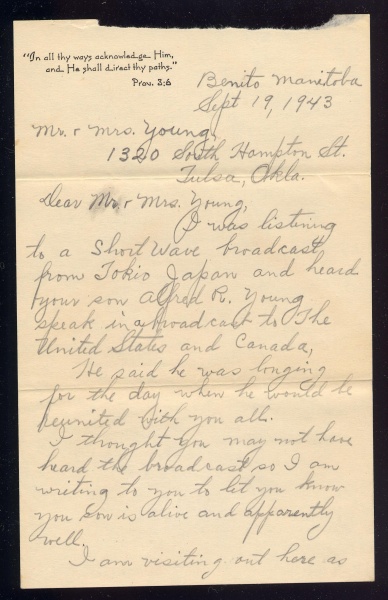 "In all thy ways acknowledge Him,
and He shall direct thy paths."
Prov. 3:6
Benito Manitoba
Sept 19, 1943
Mr. & Mrs. Young,
1320 South Hampton St.
Tulsa, Okla.
Dear Mr. & Mrs. Young,
I was listening
to a Short Wave broadcast
from Tokio Japan and heard
your son Alfred R. Young
speak in a broadcast to The
United States and Canada,
He said he was longing
for the day when he would be
reunited with you all.
I thought you may not have
heard the broadcast so I am
writing to you to let you know
you son is alive and apparently
well.
I am visiting out here as